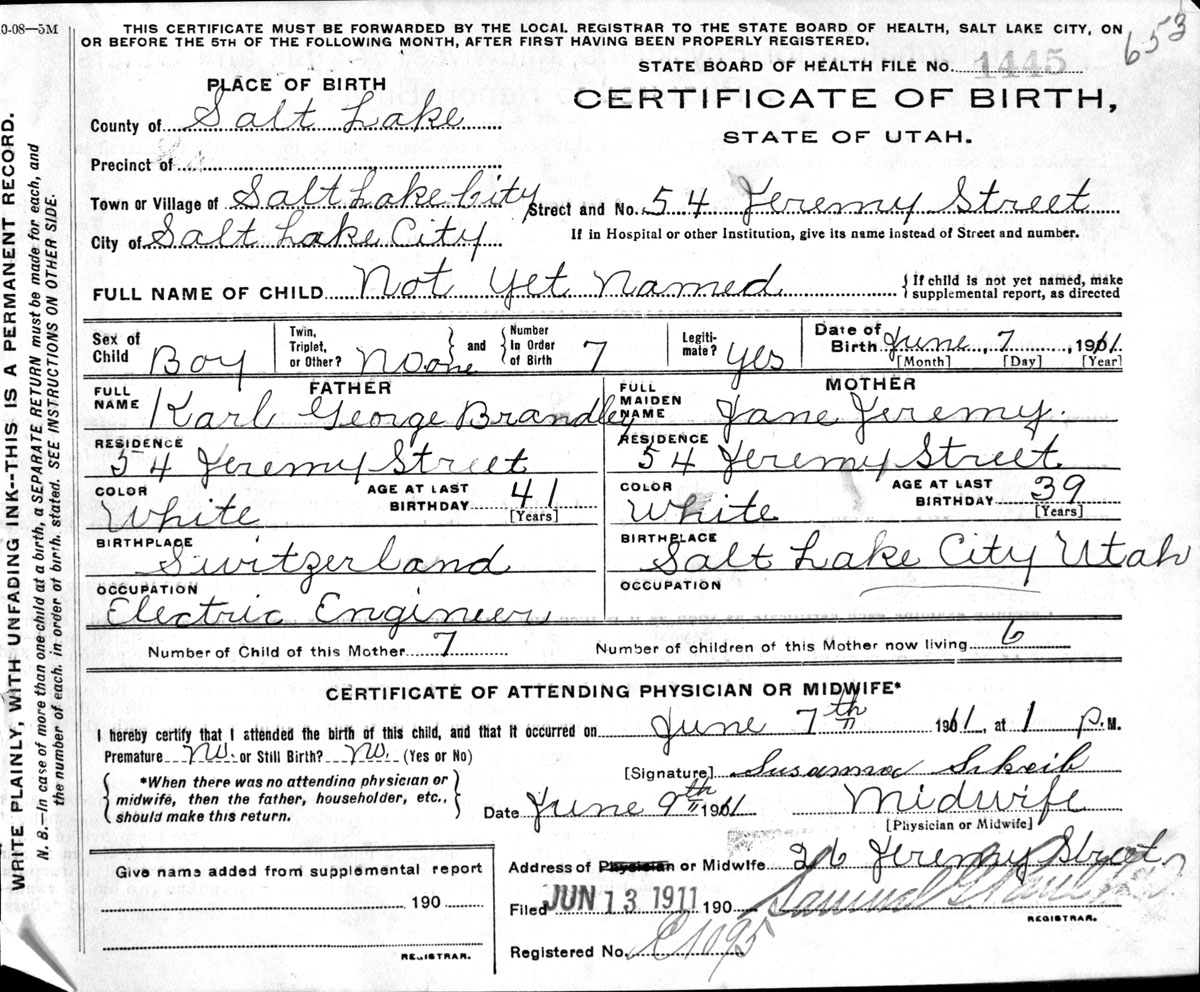 0-08—5M
THIS CERTIFICATE MUST BE FORWARDED BY THE LOCAL REGISTRAR TO THE STATE BOARD OF HEALTH, SALT LAKE CITY, ON
OR BEFORE THE 5TH OF THE FOLLOWING MONTH, AFTER FIRST HAVING BEEN PROPERLY REGISTERED.
653
STATE BOARD OF HEALTH FILE No. 1445
PLACE OF BIRTH
CERTIFICATE OF BIRTH,
STATE OF UTAH.
County of Salt Lake
Precinct of
Town or Village of Salt Lake City
Street and No. 54 Jeremy Street
City of Salt Lake City
If in Hospital or other Institution, give its name instead of Street and number.
FULL NAME OF CHILD Not Yet Named
If child is not yet named, make
supplemental report, as directed
Sex of Child Boy
Twin, Triplet, or Other? No one
and
Number in Order of Birth 7
Legiti-mate? Yes
Date of Birth June, 7, 1911
[Month] [Day] [Year]
FATHER
FULL NAME Karl George Brandley
RESIDENCE
54 Jeremy Street
COLOR White
AGE AT LAST BIRTHDAY 41
[Years]
BIRTHPLACE
Switzerland
OCCUPATION
Electric Engineer
MOTHER
FULL MAIDEN NAME Jane Jeremy.
RESIDENCE
54 Jeremy Street
COLOR White
AGE AT LAST BIRTHDAY 39
[Years]
BIRTHPLACE
Salt Lake City Utah
OCCUPATION
Number of Child of this Mother 7
Number of children of this Mother now living 6
CERTIFICATE OF ATTENDING PHYSICIAN OR MIDWIFE*
I hereby certify that I attended the birth of this child, and that it occurred on June 7th 1911, at 1 P.M.
Premature No. or Still Birth? No. (Yes or No)
*When there was no attending physician or
midwife, then the father, householder, etc.,
should make this return.
[Signature] Susanna
Date June 9th 1911
Midwife
[Physician or Midwife]
Address of Physician or Midwife 26 Jeremy Street
Filed JUN 13 1911 190
Samuel G.
REGISTRAR.
Registered No. C1095
Give name added from supplemental report
190
REGISTRAR.
WRITE PLAINLY, WITH UNFADING INK--THIS IS A PERMANENT RECORD.
N. B.—In case of more than one child at a birth, a SEPARATE RETURN must be made for each, and
the number of each, in order of birth, stated. SEE INSTRUCTIONS ON OTHER SIDE.